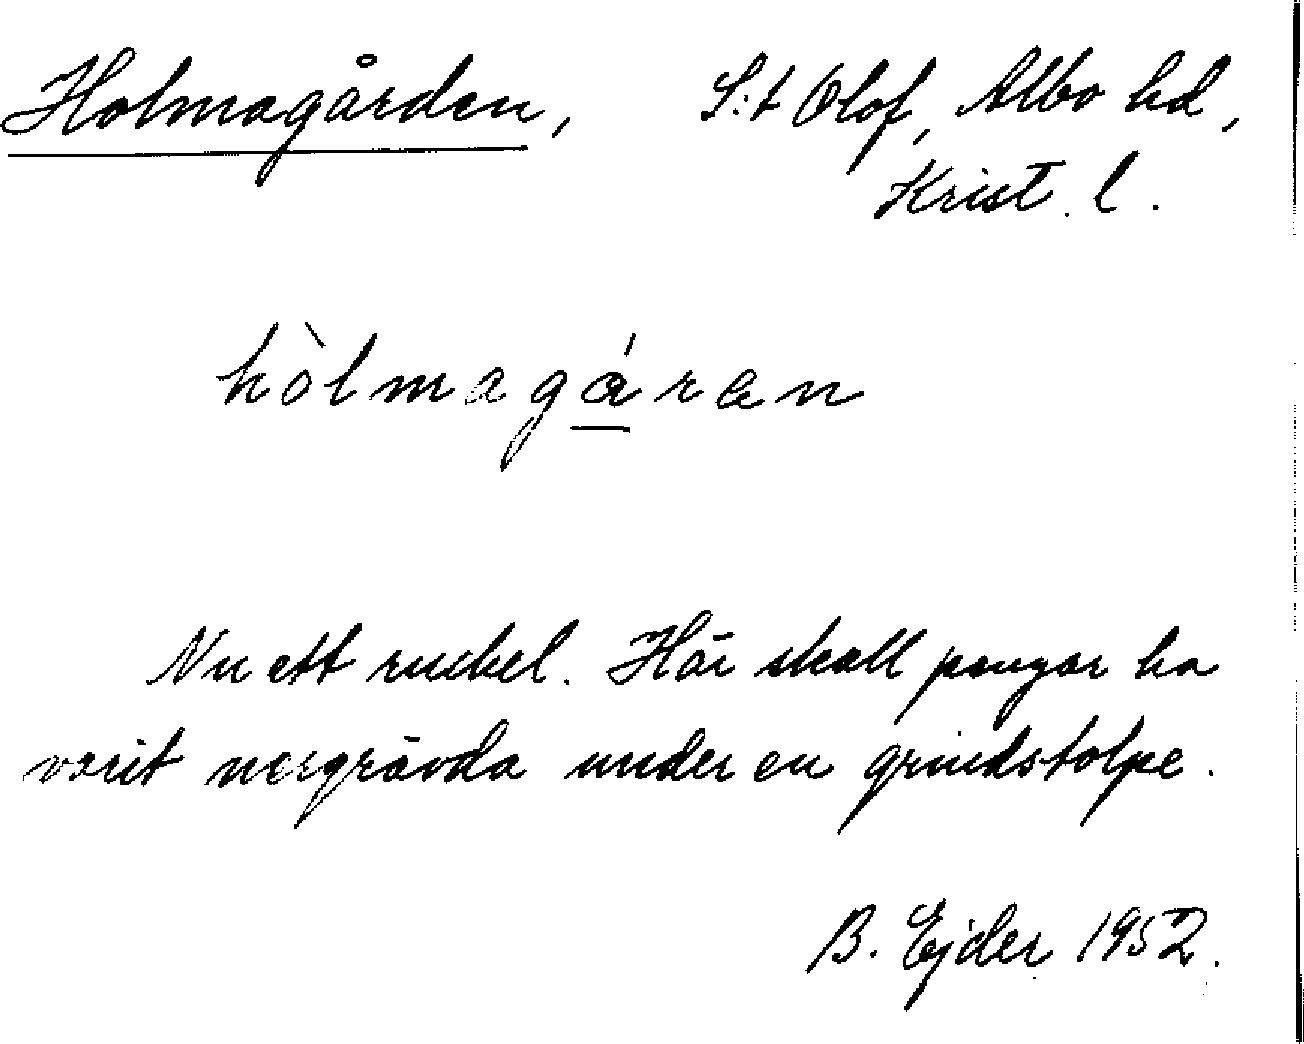 Holmagården, S:t Olof, Albo hd,
Krist. l.
hòlmagá̱ran
Nu ett ruckel. Här skall pengar ha
varit nergrävda under en grindstolpe.
B. Ejder 1952.